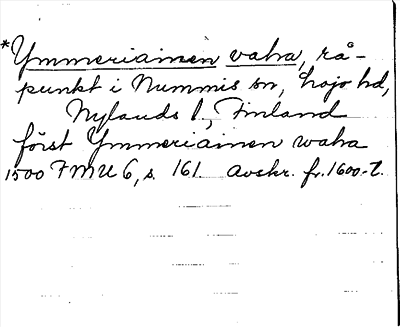 *Ymmeriainen vaha, rå-
punkt i Nummis sn, Lojo hd,
Nylands l., Finland
först Ymmeriainen waha
1500 FMU 6, s. 161. Avskr. fr. 1600-t.